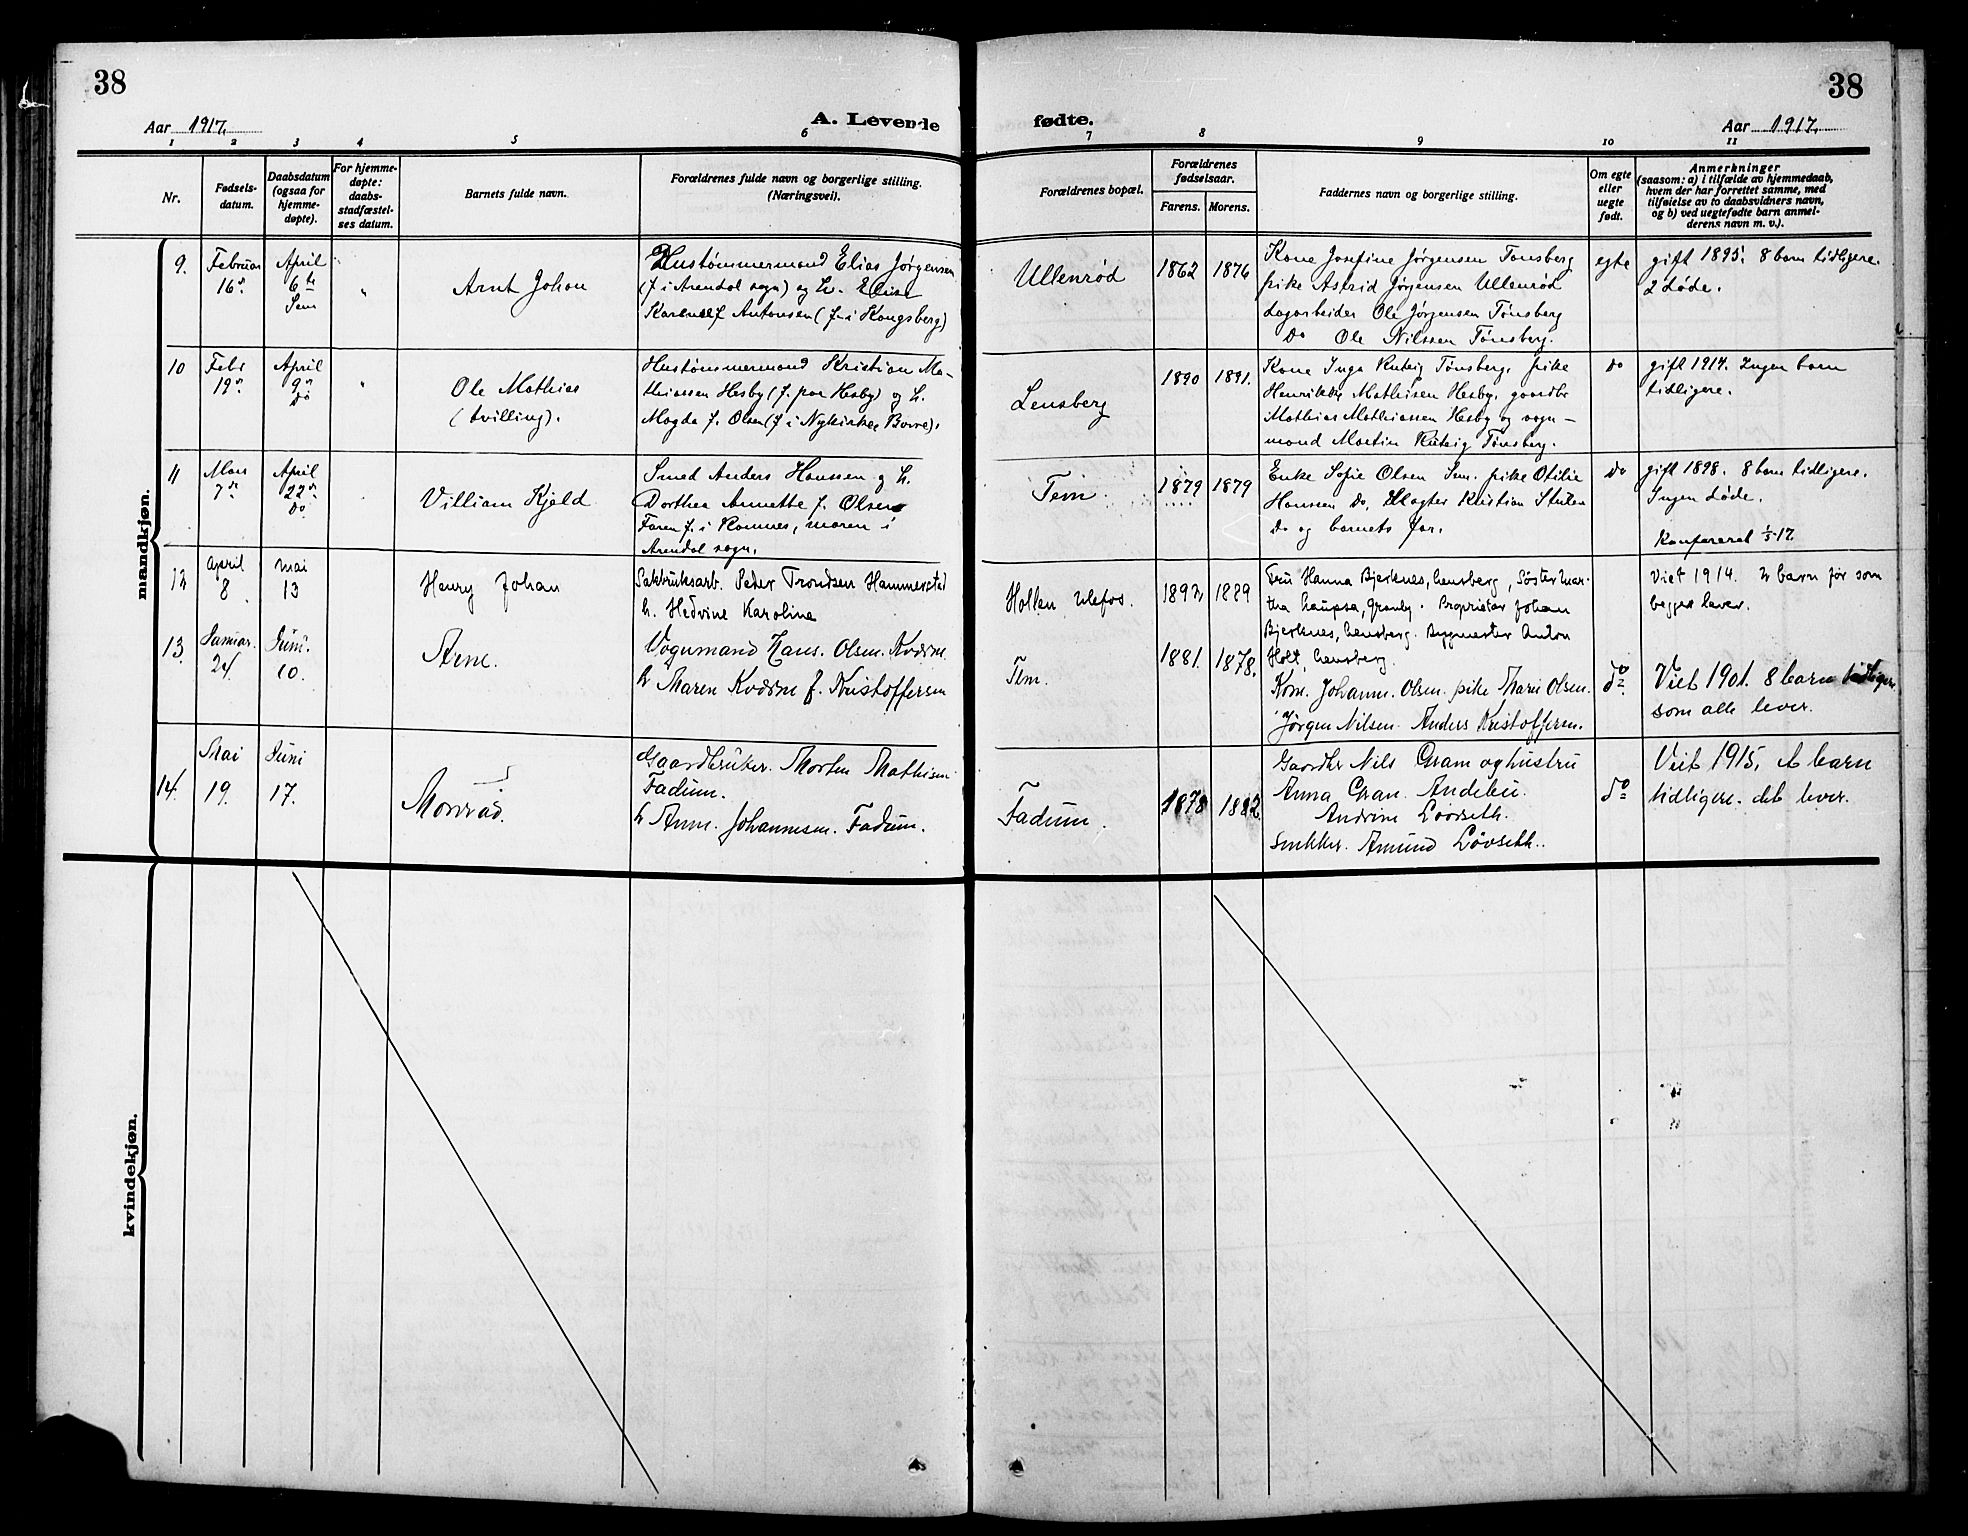 38
38
Aar 1917.
A. Levende
fødte.
Aar 1917.
1 2 3 4 5 6 7 8 9 10 11
Nr.
Fødsels-
datum.
Daabsdatum
(ogsaa for
hjemme-
døpte).
For hjemme-
døpte:
daabs-
stadfæstel-
ses datum.
Barnets fulde navn.
Forældrenes fulde navn og borgerlige stilling.
(Næringsvei).
Forældrenes bopæl.
Forældrenes
fødselsaar.
Farens. Morens.
Faddernes navn og borgerlige stilling.
Om egte
eller
uegte
født.
Anmerkninger
(saasom: a) i tilfælde av hjemmedaab,
hvem der har forrettet samme, med
tilføielse av to daabsvidners navn,
og b) ved uegtefødte barn anmel-
derens navn m. v.).
mandkjøn.
9.
Februar
16de
April
6te
Sem
"
Arnt Johan
Hustømmermand Elias Jørgensen
(f. i Arendal sogn) og h. Elise
Karense f. Antonsen (f. i Kongsberg)
Ullenrød
1862
1876
Kone Josefine Jørgensen Tønsberg
pike Astrid Jørgensen Ullenrød
Lagarbeider Ole Jørgensen Tønsberg
Do Ole Nilssen Tønsberg.
egte
gift 1895. 8 barn tidligere.
2 døde.
10
Febr
19de
April
9de
Do
"
Ole Mathias
(tvilling).
Hustømmermand Kristian Ma-
thiassen Hesby (f. paa Hesby) og h.
Magda f. Olsen (f. i Nykirke Borre).
Lensberg
1890
1891.
Kone Inga Tønsberg, pike
Henrikke Mathisen Hesby, gaardbr
Mathias Mathiassen Hesby og vogn-
mand Martin Tønsberg.
Do
gift 1914. Ingen barn
tidligere.
11
Mars
7de
April
22de
Do
Villiam Kjeld
Smed Anders Hanssen og h.
Dorthea Annette f. Olsen
Faren f. i Ramnes, moren i
Arendal sogn.
Tem.
1879
1879
Enke Sofie Olsen Sem. pike Otilie
Hanssen Do, Slagter Kristian
Do og barnets far.
Do
gift 1898. 8 barn tidligere.
Ingen døde.
Konfereret 1/5-17
12
April
8
Mai
13
Henry Johan
Sakbruksarb. Peder Trondsen Hammerstad
h. Hedvine Karoline
Hollen Ulefos.
1892
1889
Fru Hanna Bjerknes, Lensberg, Søster Mar-
tha Laupsa, Granly. Proprietær Johan
Bjerknes, Lensberg. Bygmester Anton
Holt, Lensberg.
Viet 1914. 2 barn før som
begge lever.
13
Januar.
24
Juni.
10.
Arne.
Vognmand Hans. Olsen. Kværne.
h Maren Kværne f. Kristoffersen
Tem.
1881.
1878.
Kone. Johanne. Olsen. pike Marie Olsen.
Jørgen Nilsen. Anders Kristoffersen.
do
Viet 1901. 8 barn tidligere
som alle lever.
14.
Mai
19.
Juni
17.
Monrad.
Gaardbruker. Morten Mathisen
Fadum.
h Anne. Johannesen. Fadum.
Fadum.
1878
1882
Gaardbr Nils Gram og hustru
Anna Gran. Andebu.
Andrine Løvseth.
Snekker. Amund Løvseth..
do
Viet 1915. et barn
tidligere. det lever.
kvindekjøn.